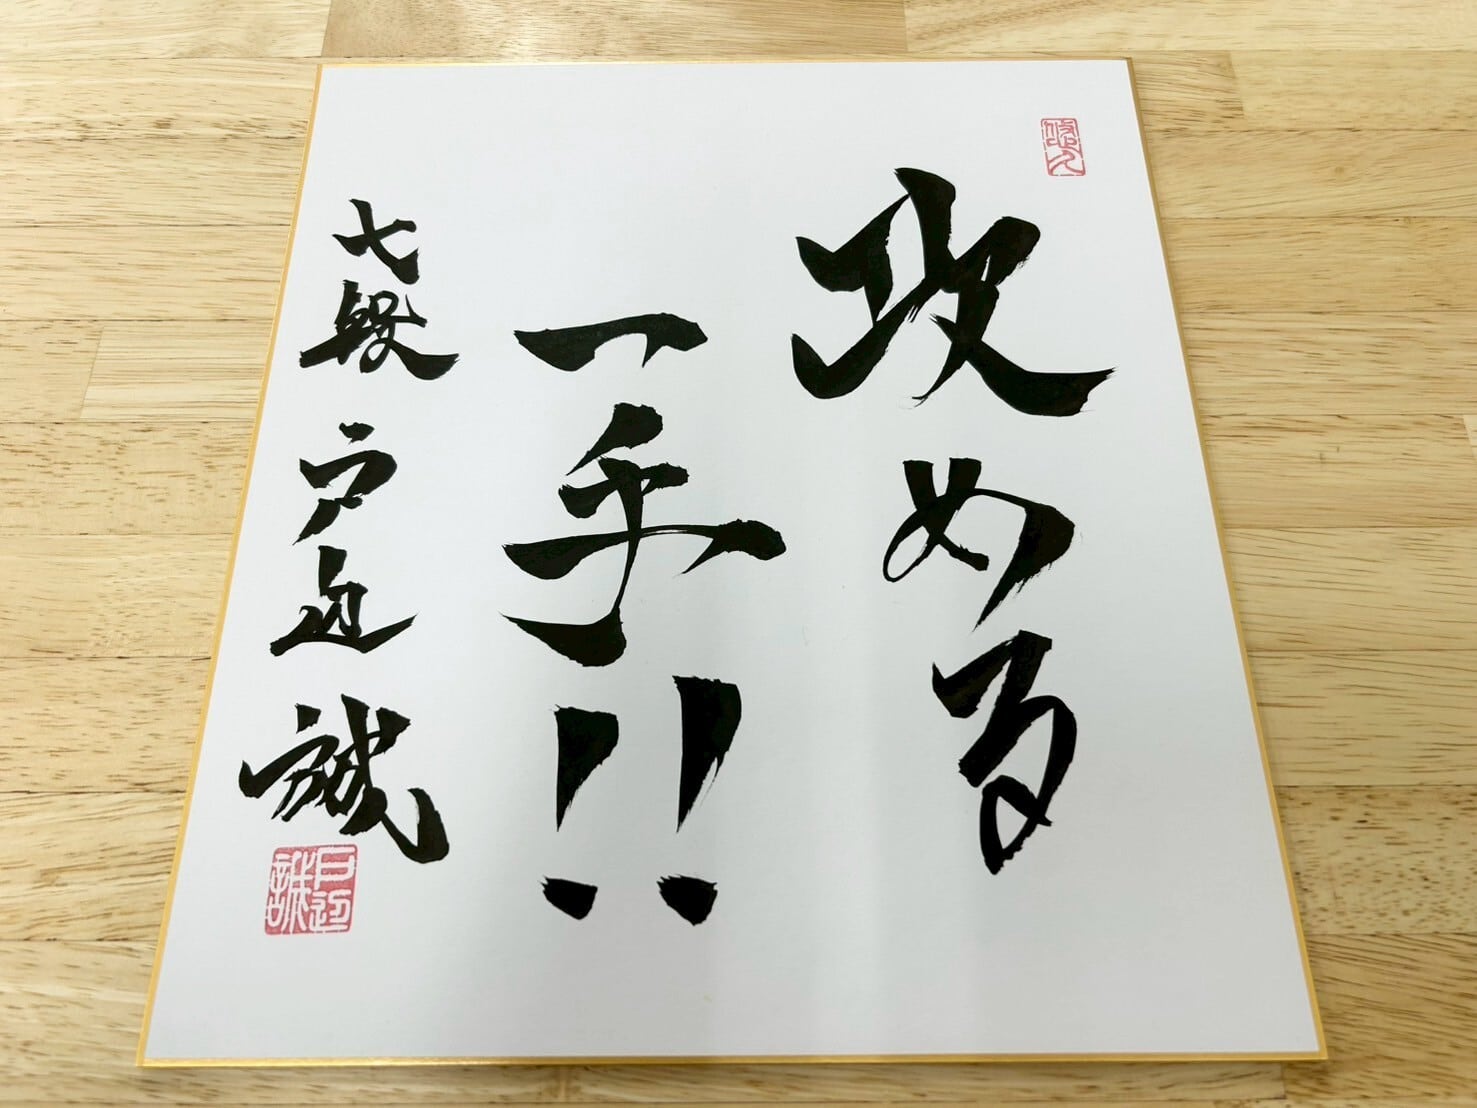 悠久
攻める
一手!!
七段 戸辺 誠
戸辺誠